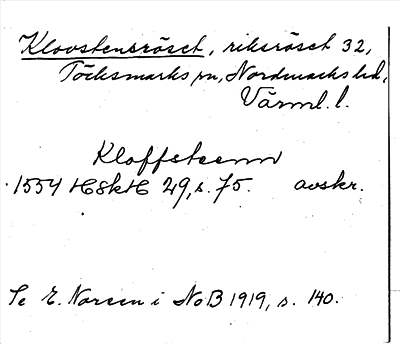 Kloostensröset, riksröset 32,
Töcksmarks sn, Nordmarks hd,
Värml. l.
Kloffsteenn
1554 HSkH 29, s. 75. avskr.
Se E. Noreen i NoB 1919, s. 140.